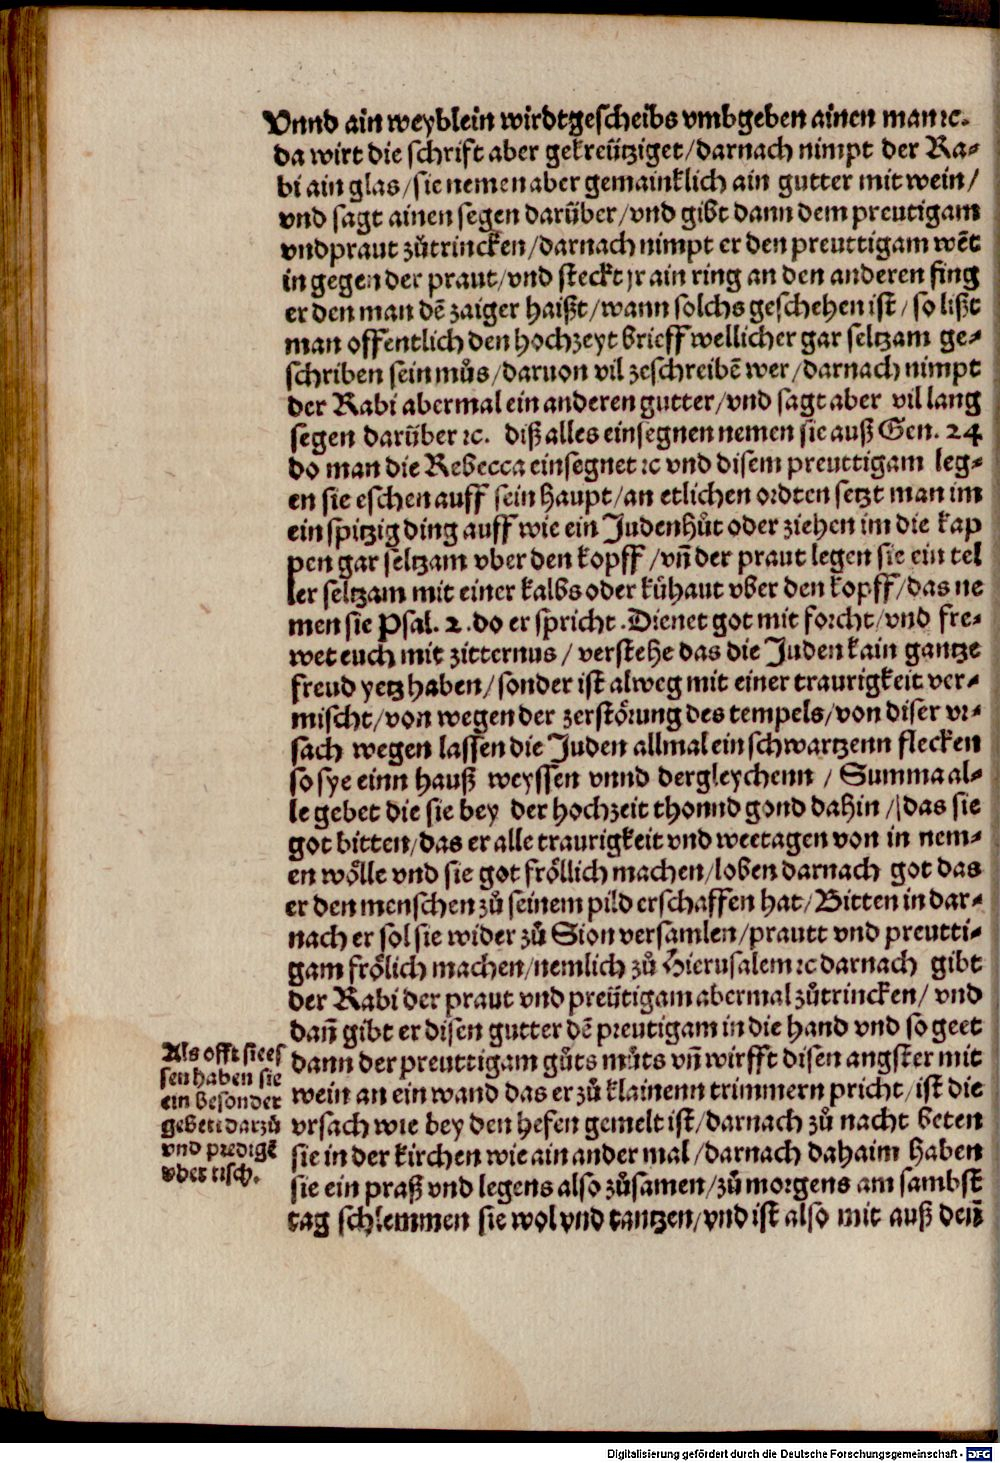 Vnnd ain weyblein wirdt gescheibs vmbgeben ainen man ꝛc.
da wirt die schrift aber gekreütziget/darnach nimpt der Ra-
bi ain glas/sie nemen aber gemainklich ain gutter mit wein/
vnd sagt ainen segen darüber/vnd gibt dann dem preutigam
vnd praut zůtrincken/darnach nimpt er den preuttigam wēt
in gegen der praut/vnd steckt jr ain ring an den anderen fing
er den man dē zaiger haißt/wann solchs geschehen ist/so lißt
man offentlich den hochzeyt brieff wellicher gar seltzam ge-
schriben sein můs/daruon vil zeschreibē wer/darnach nimpt
der Rabi abermal ein anderen gutter/vnd sagt aber vil lang
segen darüber ꝛc. diß alles einsegnen nemen sie auß Gen. 24
do man die Rebecca einsegnet ꝛc vnd disem preuttigam leg-
en sie eschen auff sein haupt/an etlichen ordten setzt man im
ein spitzig ding auff wie ein Judenhůt oder ziehen im die kap
pen gar seltzam vber den kopff/vn̄ der praut legen sie ein tel
ler seltzam mit einer kalbs oder kühaut vber den kopff/das ne
men sie Psal. 2. do er spricht. Dienet got mit forcht/vnd fre-
wet euch mit zitternus/ verstehe das die Juden kain gantze
freud yetz haben/sonder ist alweg mit einer traurigkeit ver-
mischt/von wegen der zerstörung des tempels/von diser vr-
sach wegen lassen die Juden allmal ein schwartzenn flecken
so sye einn hauß weyssen vnnd dergleychenn / Summa al-
le gebet die sie bey der hochzeit thonnd gond dahin/das sie
got bitten/das er alle traurigkeit vnd weetagen von in nem-
en wölle vnd sie got fröllich machen/loben darnach got das
er den menschen zů seinem pild erschaffen hat/Bitten in dar-
nach er sol sie wider zů Sion versamlen/prautt vnd preutti-
gam frölich machen/nemlich zů Hierusalem ꝛc darnach gibt
der Rabi der praut vnd preütigam abermal zůtrincken/ vnd
dan̄ gibt er disen gutter dē preutigam in die hand vnd so geet
dann der preuttigam gůts můts vn̄ wirfft disen angster mit
wein an ein wand das er zů klainenn trimmern pricht/ist die
vrsach wie bey den hefen gemelt ist/darnach zů nacht beten
sie in der kirchen wie ain ander mal/darnach dahaim haben
sie ein praß vnd legens also zůsamen/zů morgens am sambst
tag schlemmen sie wol vnd tantzen/vnd ist also mit auß den̄
Als offt sie es
sen haben sie
ein besonder
gebett darzů
vnd predigē
vber tisch.
Digitalisierung gefördert durch die Deutsche Forschungsgemeinschaft - DFG